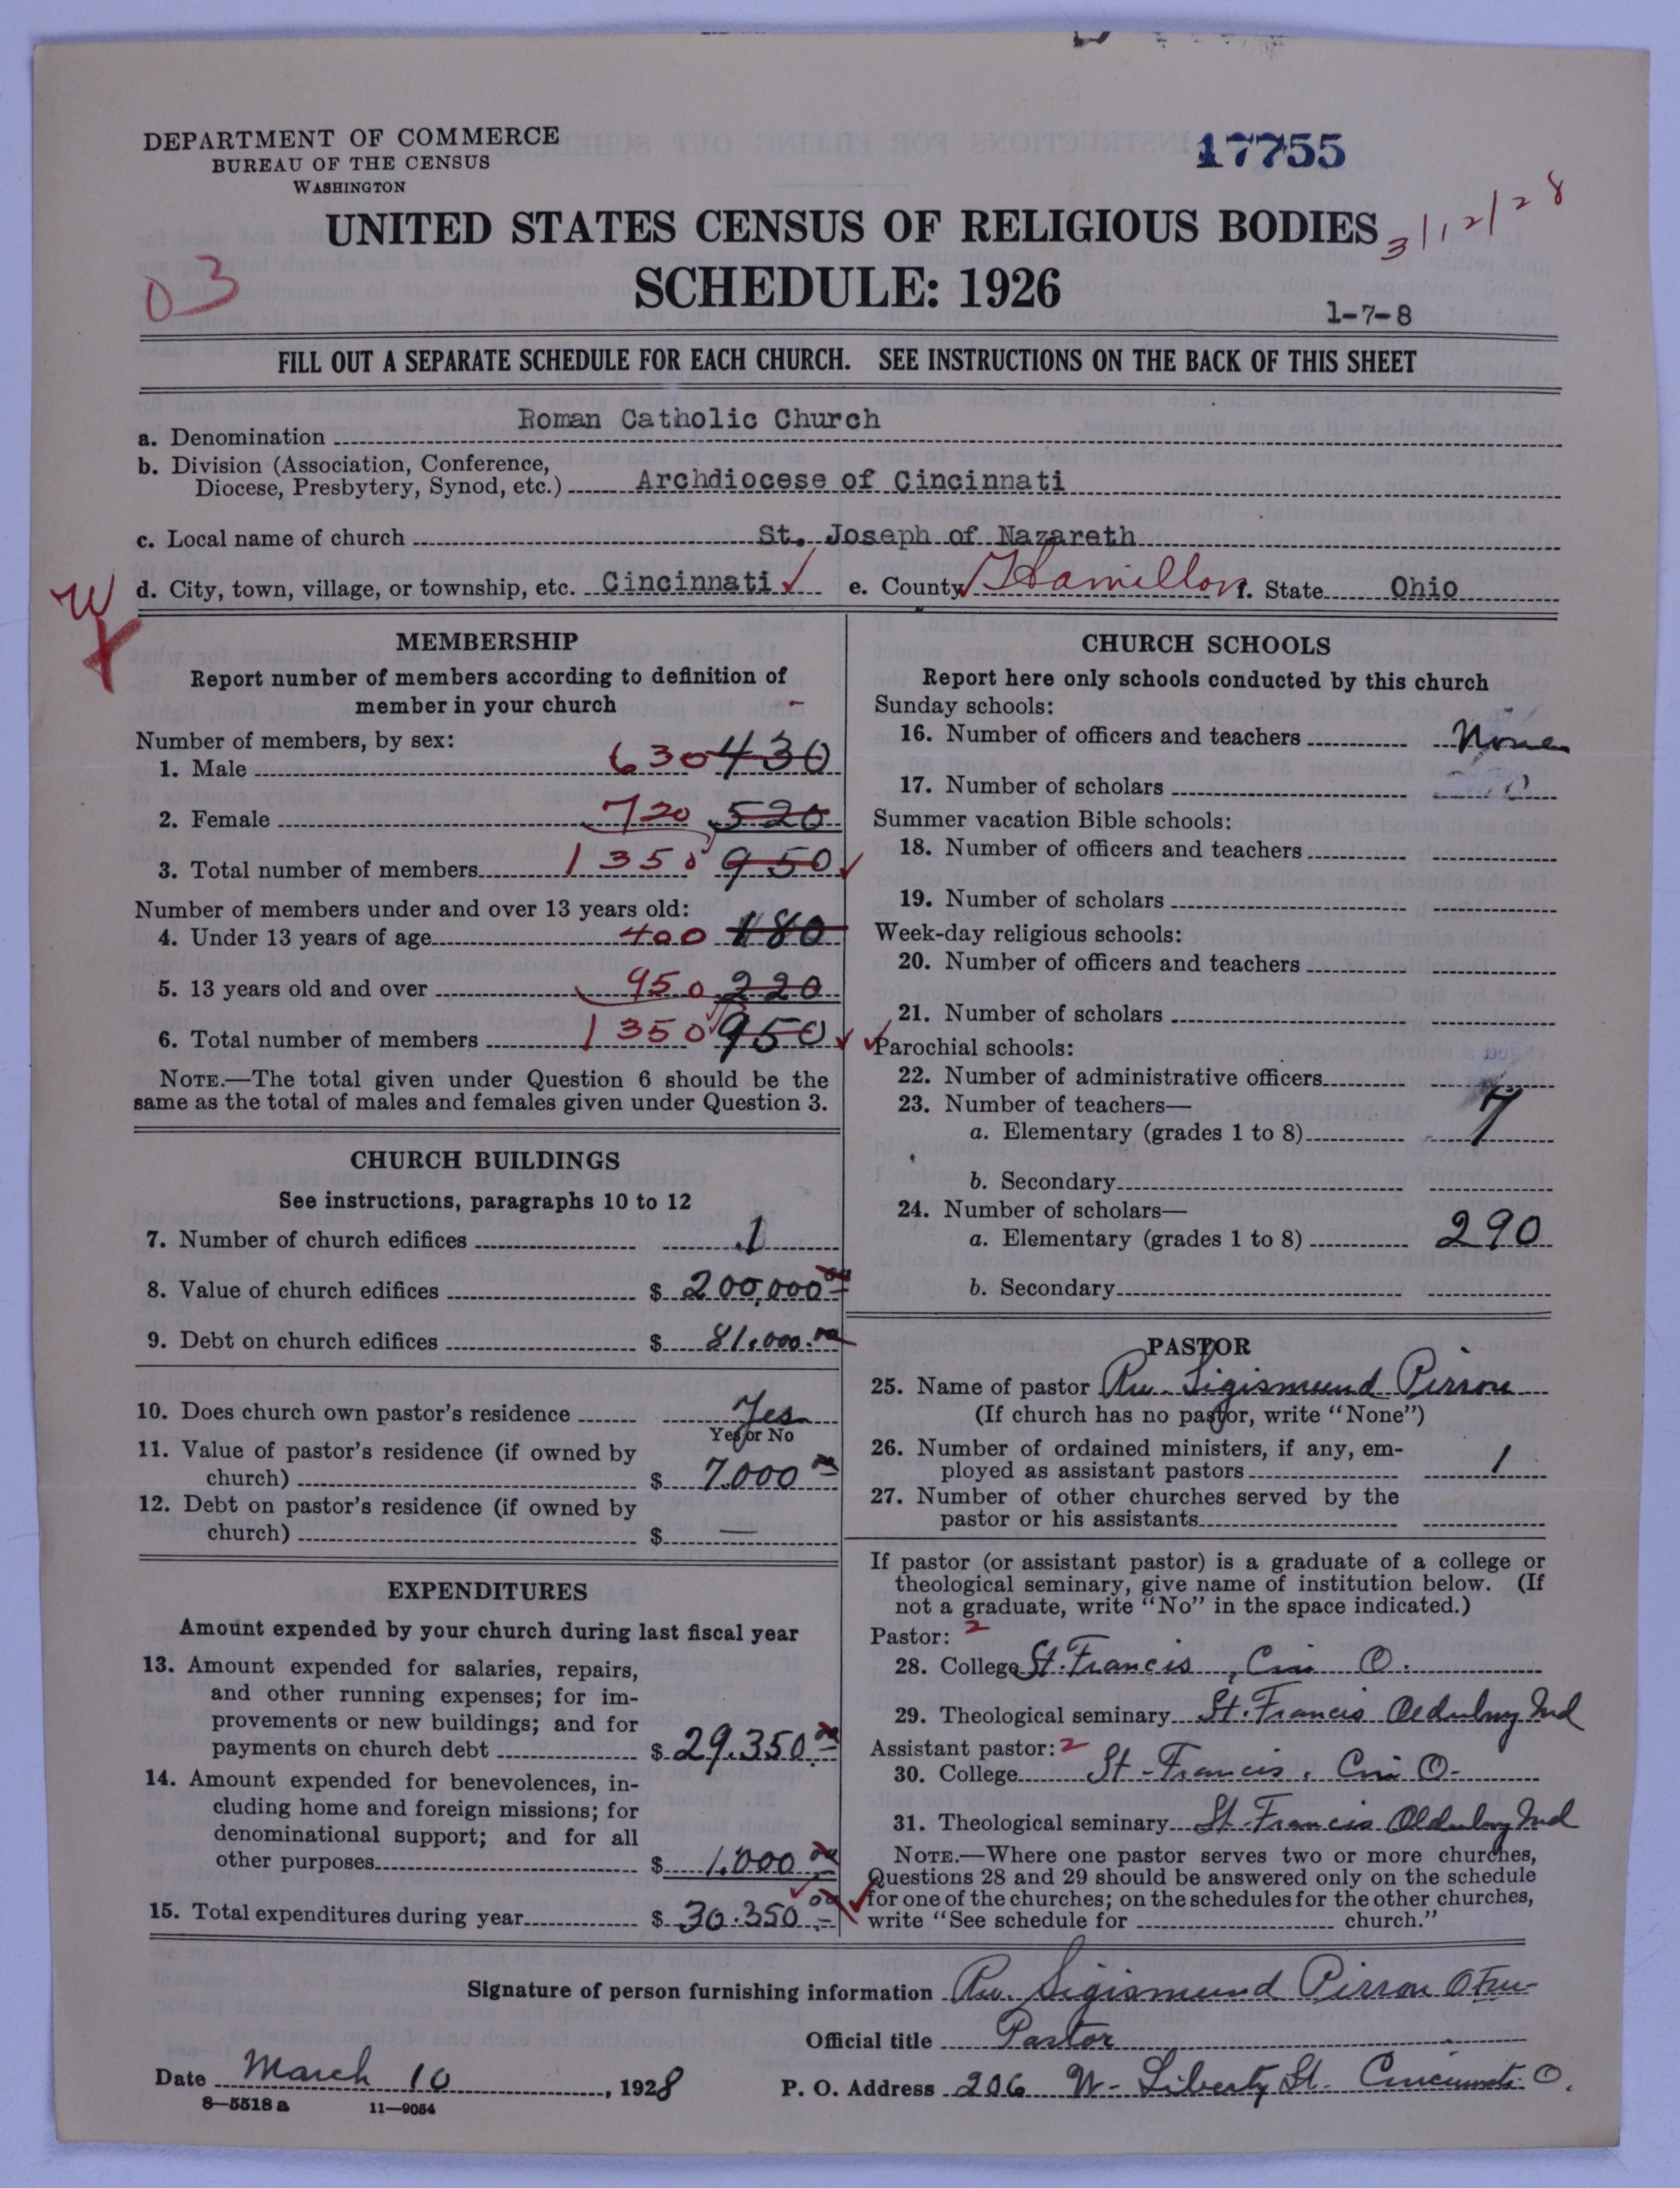 DEPARTMENT OF COMMERCE
BUREAU OF THE CENSUS
WASHINGTON
17755
UNITED STATES CENSUS OF RELIGIOUS BODIES
3/12/28
03
SCHEDULE: 1926
1-7-8
FILL OUT A SEPARATE SCHEDULE FOR EACH CHURCH. SEE INSTRUCTIONS ON THE BACK OF THIS SHEET
a. Denomination Roman Catholic Church
b. Division (Association, Conference,
Diocese, Presbytery, Synod, etc.) Archdiocese of Cincinnati
c. Local name of church St. Joseph of Nazareth
d. City, town, village, or township, etc. Cincinnati ✓ e. County Hamilton f. State Ohio
W
MEMBERSHIP
Report number of members according to definition of
member in your church
Number of members, by sex:
1. Male 630 430
2. Female 720 520
3. Total number of members 1350 950
Number of members under and over 13 years old:
4. Under 13 years of age 400 180
5. 13 years old and over 950 220
6. Total number of members 1350 950
NOTE.—The total given under Question 6 should be the
same as the total of males and females given under Question 3.
CHURCH BUILDINGS
See instructions, paragraphs 10 to 12
7. Number of church edifices 1
8. Value of church edifices $ 200,000 00
9. Debt on church edifices $ 81,000.00
10. Does church own pastor's residence Yes
Yes or No
11. Value of pastor's residence (if owned by
church) $ 7.000 00
12. Debt on pastor's residence (if owned by
church) $ —
EXPENDITURES
Amount expended by your church during last fiscal year
13. Amount expended for salaries, repairs,
and other running expenses; for im-
provements or new buildings; and for
payments on church debt $ 29.350 00
14. Amount expended for benevolences, in-
cluding home and foreign missions; for
denominational support; and for all
other purposes $ 1.000 00
15. Total expenditures during year $ 30.350 00
CHURCH SCHOOLS
Report here only schools conducted by this church
Sunday schools:
16. Number of officers and teachers None
17. Number of scholars
Summer vacation Bible schools:
18. Number of officers and teachers
19. Number of scholars
Week-day religious schools:
20. Number of officers and teachers
21. Number of scholars
Parochial schools:
22. Number of administrative officers
23. Number of teachers—
a. Elementary (grades 1 to 8) 7
b. Secondary
24. Number of scholars—
a. Elementary (grades 1 to 8) 290
b. Secondary
PASTOR
25. Name of pastor Rev. Sigismund Pirron
(If church has no pastor, write "None")
26. Number of ordained ministers, if any, em-
ployed as assistant pastors 1
27. Number of other churches served by the
pastor or his assistants
If pastor (or assistant pastor) is a graduate of a college or
theological seminary, give name of institution below. (If
not a graduate, write "No" in the space indicated.)
Pastor: 2
28. College St. Francis, Cin O.
29. Theological seminary St. Francis Oldenburg Ind
Assistant pastor: 2
30. College St. Francis, Cin O.
31. Theological seminary St. Francis Oldenburg Ind
NOTE.—Where one pastor serves two or more churches,
Questions 28 and 29 should be answered only on the schedule
for one of the churches; on the schedules for the other churches,
write "See schedule for church."
Signature of person furnishing information Rev. Sigismund Pirron OFM
Official title Pastor
Date March 10, 1928 P. O. Address 206 W. Liberty St. Cincinnati O.
8—5518 a 11—9054